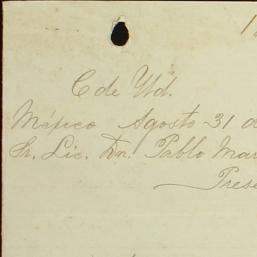 C de Ud.
México Agosto 31 d
Sr. Lic. Dn. Pablo Mar
Prese